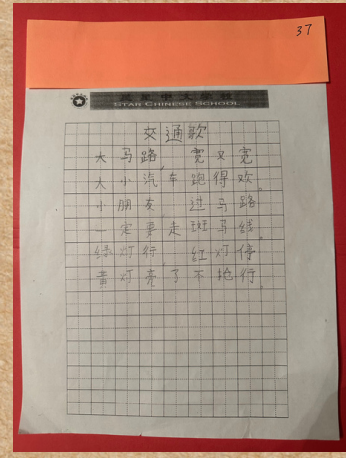 37
星星中文学校
STAR CHINESE SCHOOL
交通歌
大马路，宽又宽
大小汽车跑得欢。
小朋友 过马路
一定要走斑马线。
绿灯行 红灯停
黄灯亮了不抢行。